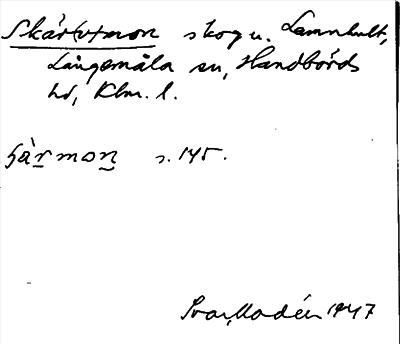 Skär(v)mon skog u. Lemnhult,
Långemåla sn, Handbörds
hd, Klm. l.
s. 145.
Ivar Modéer 1947